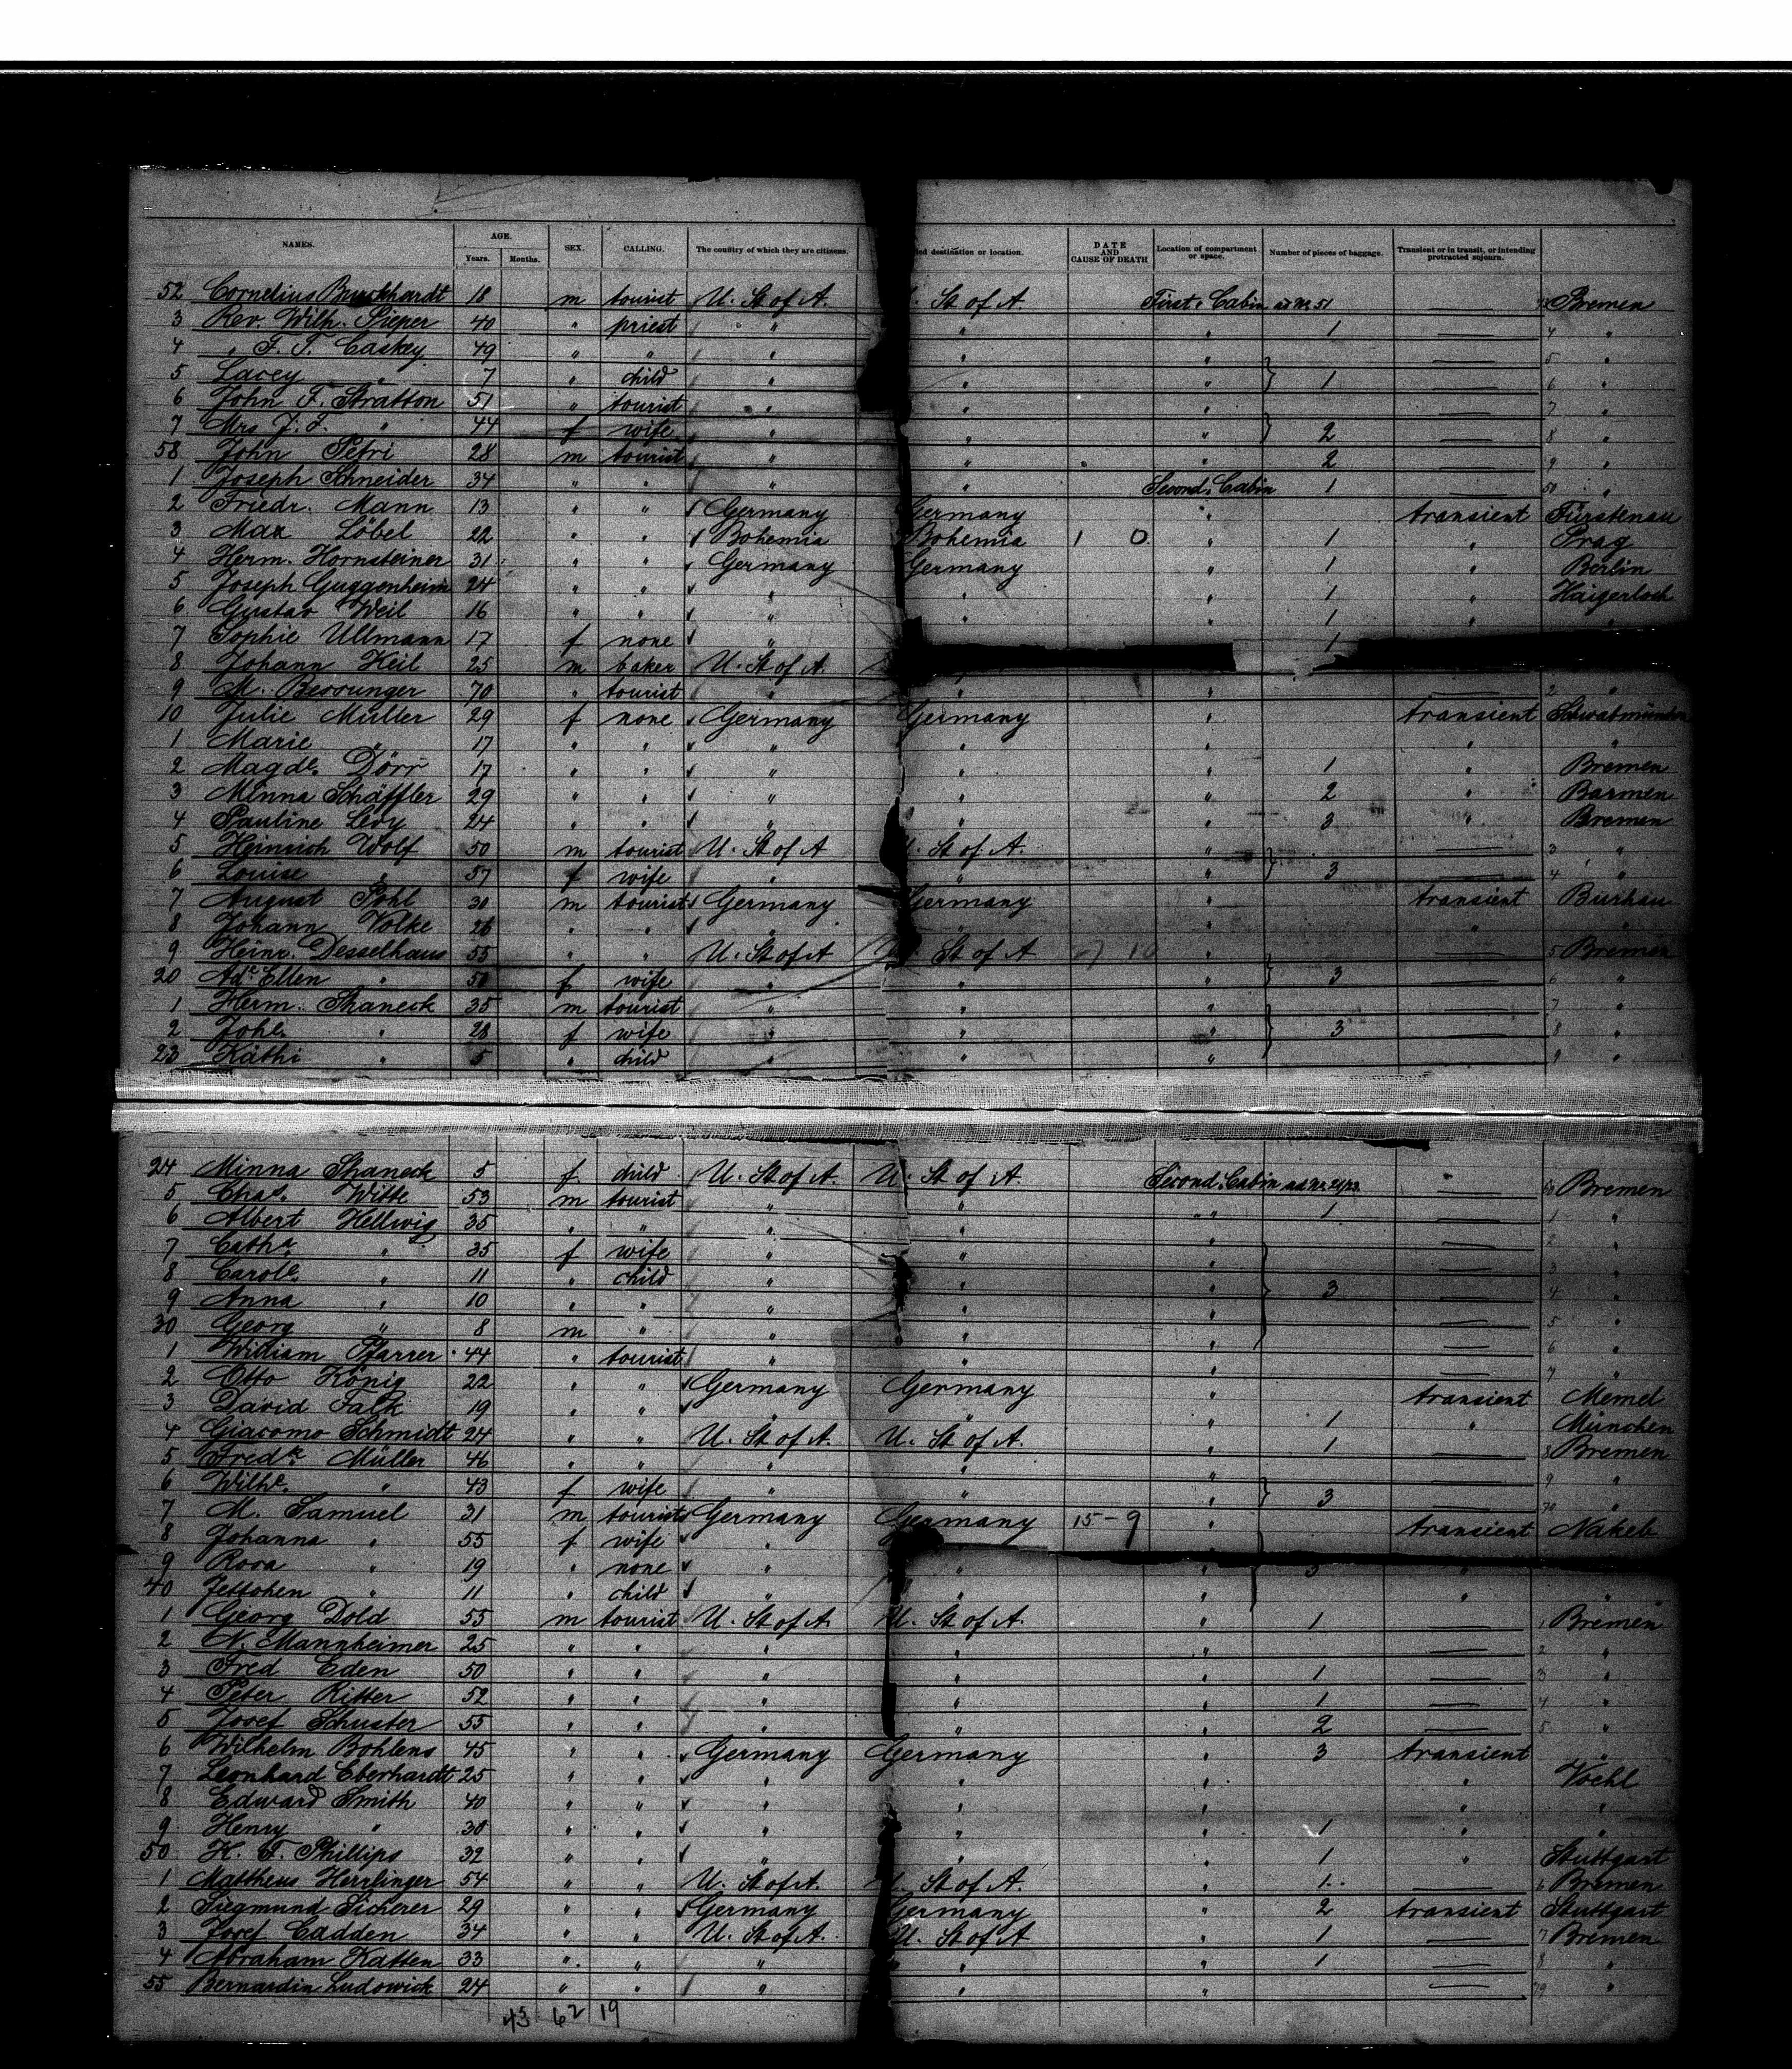 NAMES. AGE. Years. Months. SEX. CALLING. The country of which they are citizens. ed destination or location. DATE AND CAUSE OF DEATH Location of compartment or space. Number of pieces of baggage. Transient or in transit, or intending protracted sojourn.
52 Cornelius Burckhardt 18 m tourist U. St of A. St of A. First Cabin ad No 51 — Bremen
3 Rev. Wilh. Sieper 40 " priest " " " 1 — 4 "
4 " F. T. Caskey 49 " " " " " — 5 "
5 Lacey " 7 " child " " " 1 — 6 "
6 John F. Stratton 51 " tourist " " " — 7 "
7 Mrs J. F. " 44 f wife " " " 2 — 8 "
58 John Petri 28 m tourist " " " 2 — 9 "
1 Joseph Schneider 34 " " " " Second Cabin 1 — 50 "
2 Friedr. Mann 13 " " Germany Germany " transient Fürstenau
3 Max Löbel 22 " " Bohemia Bohemia 1 0 " 1 " Prag
4 Herm. Hornsteiner 31 " " Germany Germany " 1 " Berlin
5 Joseph Guggenheim 24 " " " " " 1 " Haigerloch
6 Gustav Weil 16 " " " " " 1 " "
7 Sophie Ullmann 17 f none " 1
8 Johann Keil 25 m baker U. St of A.
9 M. Bessunger 70 " tourist " " " — 2 "
10 Julie Müller 29 f none Germany Germany " transient
1 Marie " 17 " " " " " " "
2 Magde. Dörr 17 " " " " " 1 " Bremen
3 Minna Schäffler 29 " " " " " 2 " Barmen
4 Pauline Levy 24 " " " " " 3 " Bremen
5 Heinrich Wolf 50 m tourist U. St of A St of A. " — 3 "
6 Louise " 57 f wife " " " 3 — 4 "
7 August Pohl 30 m tourist Germany Germany " transient Burhau
8 Johann Volke 26 " " " " " " "
9 Heinr. Desselhaus 55 " " U. St of A St of A 7 10 " — 5 Bremen
20 Ade Ellen " 50 f wife " " " 3 — 6 "
1 Herm. Shaneck 35 m tourist " " " — 7 "
2 Johe. " 28 f wife " " " 3 — 8 "
23 Käthi " 5 " child " " " 9 "
24 Minna Shaneck 5 f child U. St of A. U. St of A. Second Cabin ad No. 21/23 — 60 Bremen
5 Chas. Witte 53 m tourist " " " " 1 — 1 "
6 Albert Hellwig 35 " " " " " — 2 "
7 Catha " 35 f wife " " " — 3 "
8 Carole. " 11 " child " " " 3 — 4 "
9 Anna " 10 " " " " " — 5 "
30 Georg " 8 m " " " " — 6 "
1 William Pfarrer 44 " tourist " " " — 7 "
2 Otto König 22 " " Germany Germany " transient Memel
3 David Falk 19 " " " " " 1 " München
4 Giacomo Schmidt 24 " " U. St of A. U. St of A. " 1 — 8 Bremen
5 Fredk. Müller 46 " " " " " — 9 "
6 Wilhe. " 43 f wife " " " 3 — 70 "
7 M. Samuel 31 m tourist Germany Germany 15 - 9 " transient Nakel
8 Johanna " 55 f wife " "
9 Rosa " 19 " none " " " 3 "
40 Jettchen " 11 " child " " " " "
1 Georg Dold 55 m tourist U. St of A. U. St of A. " 1 — 1 Bremen
2 N. Mannheimer 25 " " " " " — 2 "
3 Fred Eden 50 " " " " " 1 — 3 "
4 Peter Ritter 52 " " " " " 1 — 4 "
5 Josef Schuster 55 " " " " " 2 — 5 "
6 Wilhelm Bohlens 45 " " Germany Germany " 3 transient "
7 Leonhard Eberhardt 25 " " " " " " Voehl
8 Edward Smith 40 " " " " " " "
9 Henry " 30 " " " " " 1 " "
50 H. F. Phillips 32 " " " " " 1 " Stuttgart
1 Mattheus Herrlinger 54 " " U. St of A. St of A. " 1 — 6 Bremen
2 Siegmund Sicherer 29 " " Germany Germany " 2 transient Stuttgart
3 Josef Cadden 34 " " U. St of A. U. St of A " 1 — 7 Bremen
4 Abraham Katten 33 " " " " " 1 — 8 "
55 Bernardin Ludowick 24 " " " " " — 79 "
43 62 19